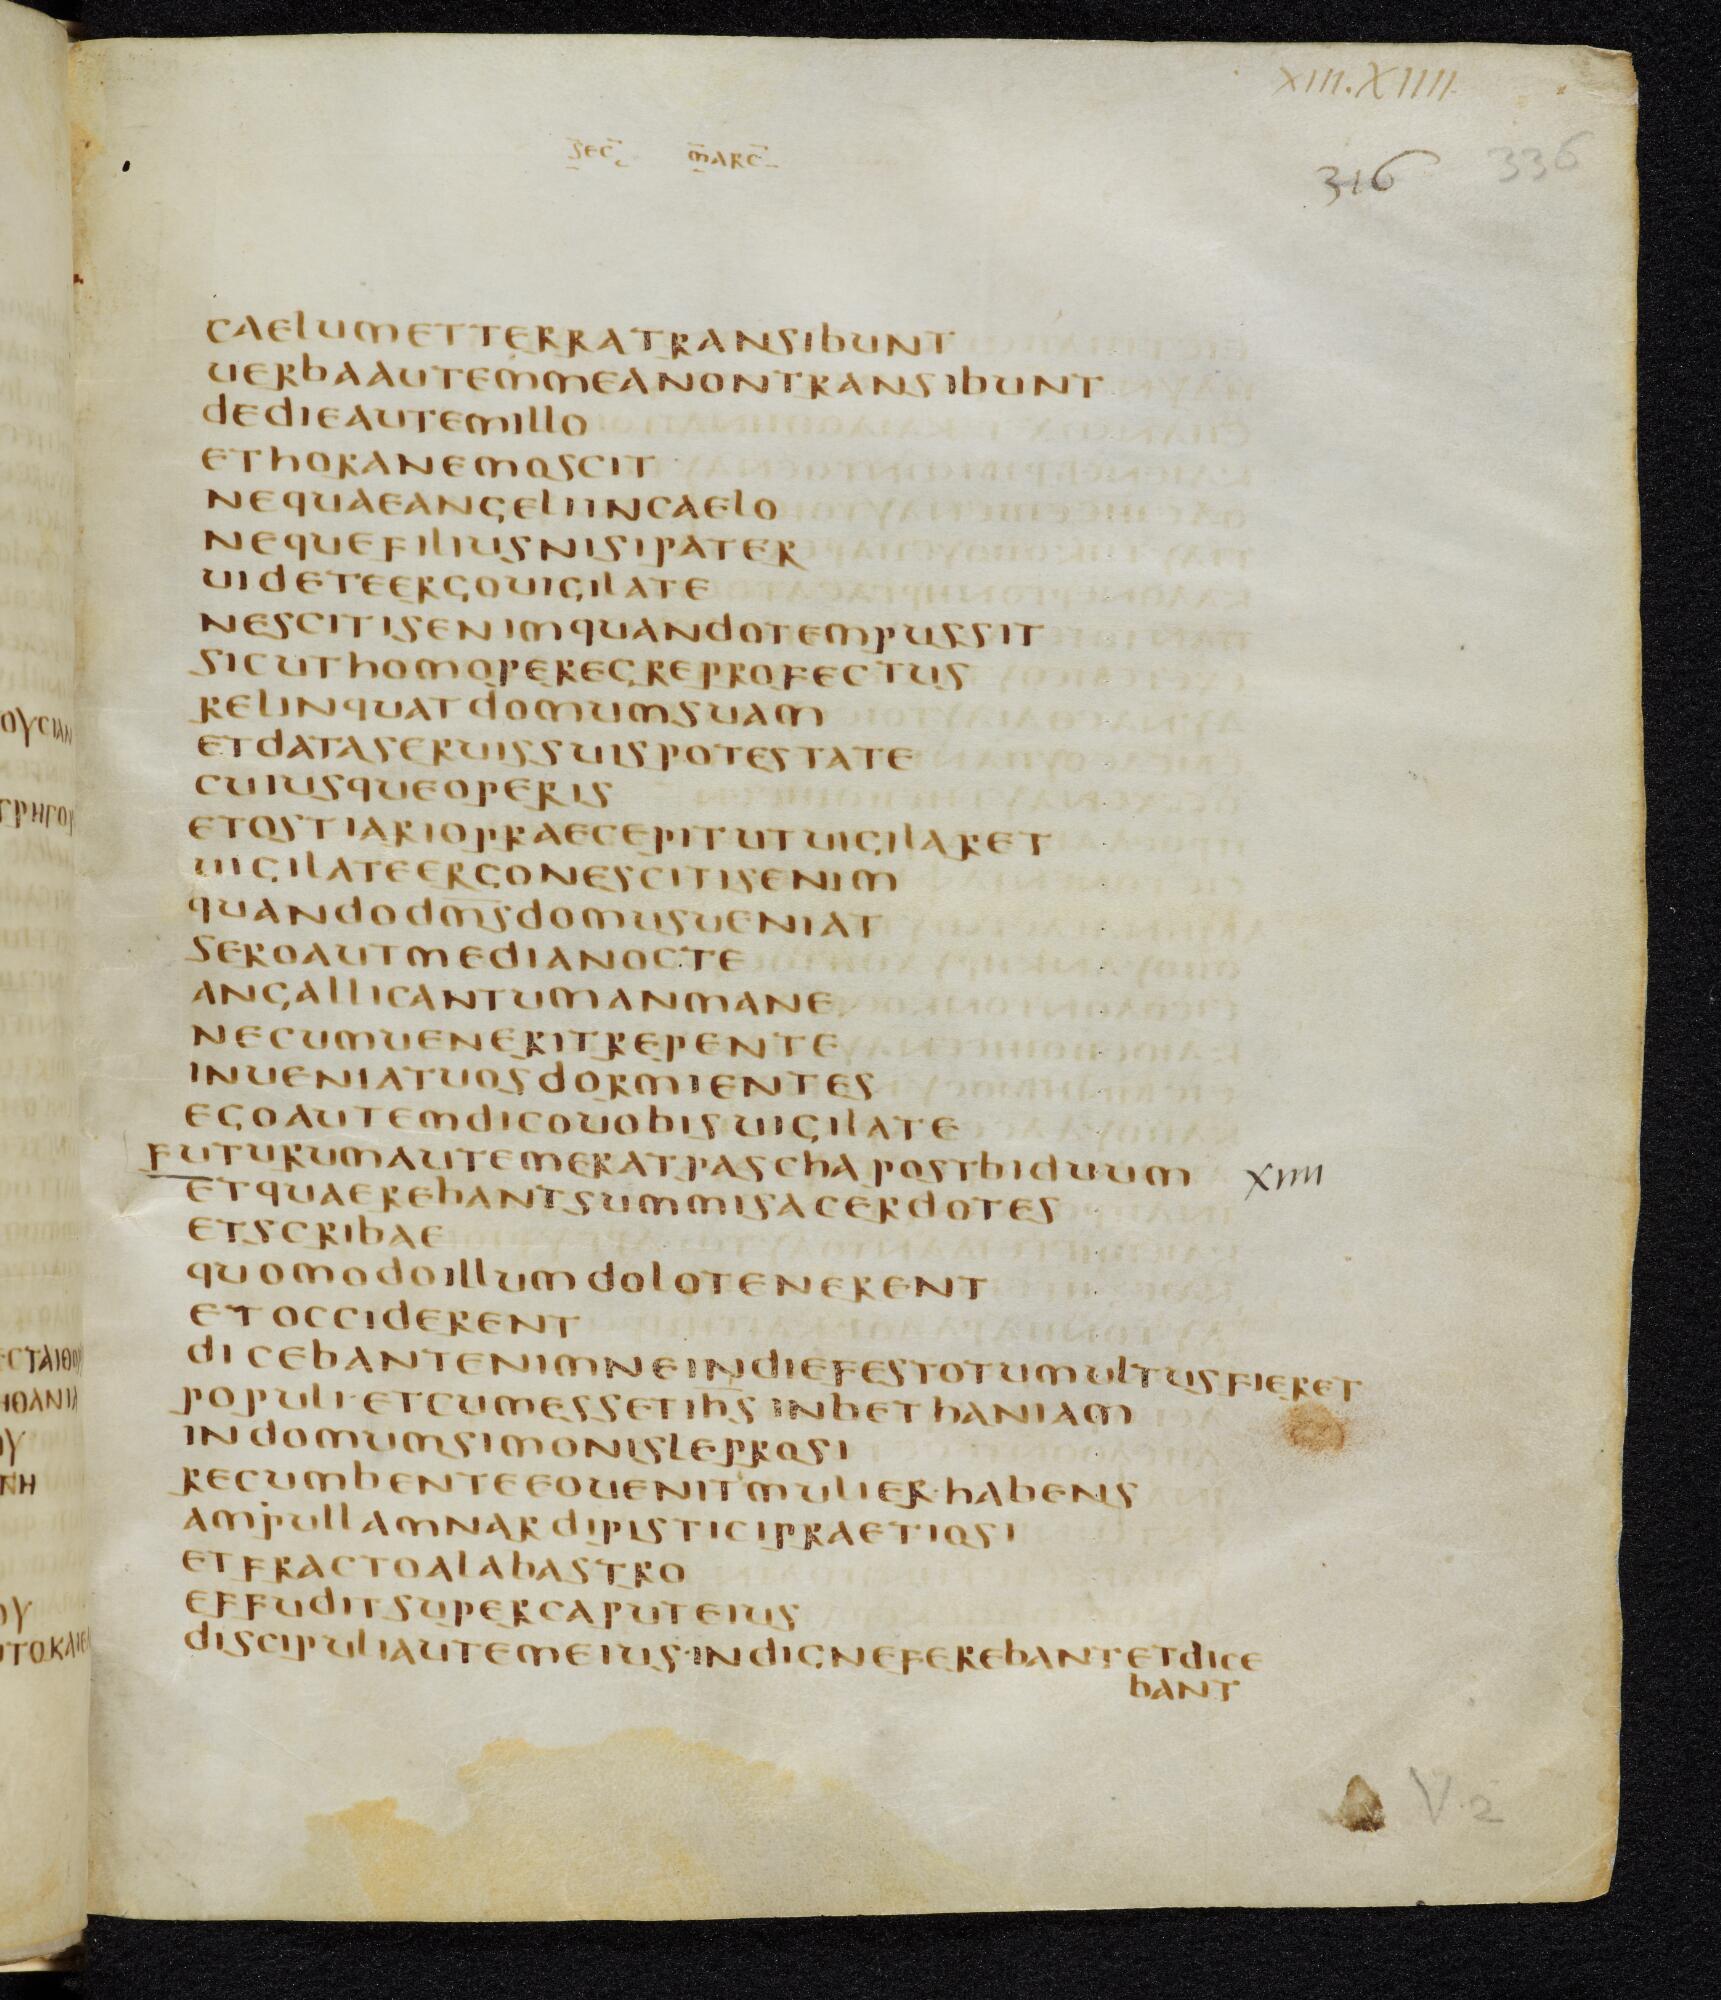 XIII.XIIII
sec marc
316 336
caelumetterratransibunt
uerbaautemmeanontransibunt
dedieautemillo
ethoranemoscit
nequaeangeliincaelo
nequefiliusnisipater
uideteergouigilate
nescitisenimquandotempussit
sicuthomoperegreprofectus
relinquatdomumsuam
etdataseruissuispotestate
cuiusqueoperis
etostiariopraecepitutuigilaret
uigilateergonescitisenim
quandodm̄sdomusueniat
seroautmedianocte
angallicantumanmane
necumueneritrepente
inueniatuosdormientes
egoautemdicouobisuigilate
futurumautemeratpaschapostbiduum XIIII
etquaerebantsummisacerdotes
etscribae
quomodoillumdolotenerent
etocciderent
dicebantenimneindiefestotumultusfieret
populi·etcumessetih̄sinbethaniam
indomumsimonisleprosi
recumbenteeouenitmulier·habens
ampullamnardipisticipraetiosi
etfractoalabastro
effuditsupercaputeius
discipuliautemeius·indigneferebant·etdice
bant
V.2
ουcιαν
γρηγορ
εcταιθο
ηθανια
ου
πη
ου